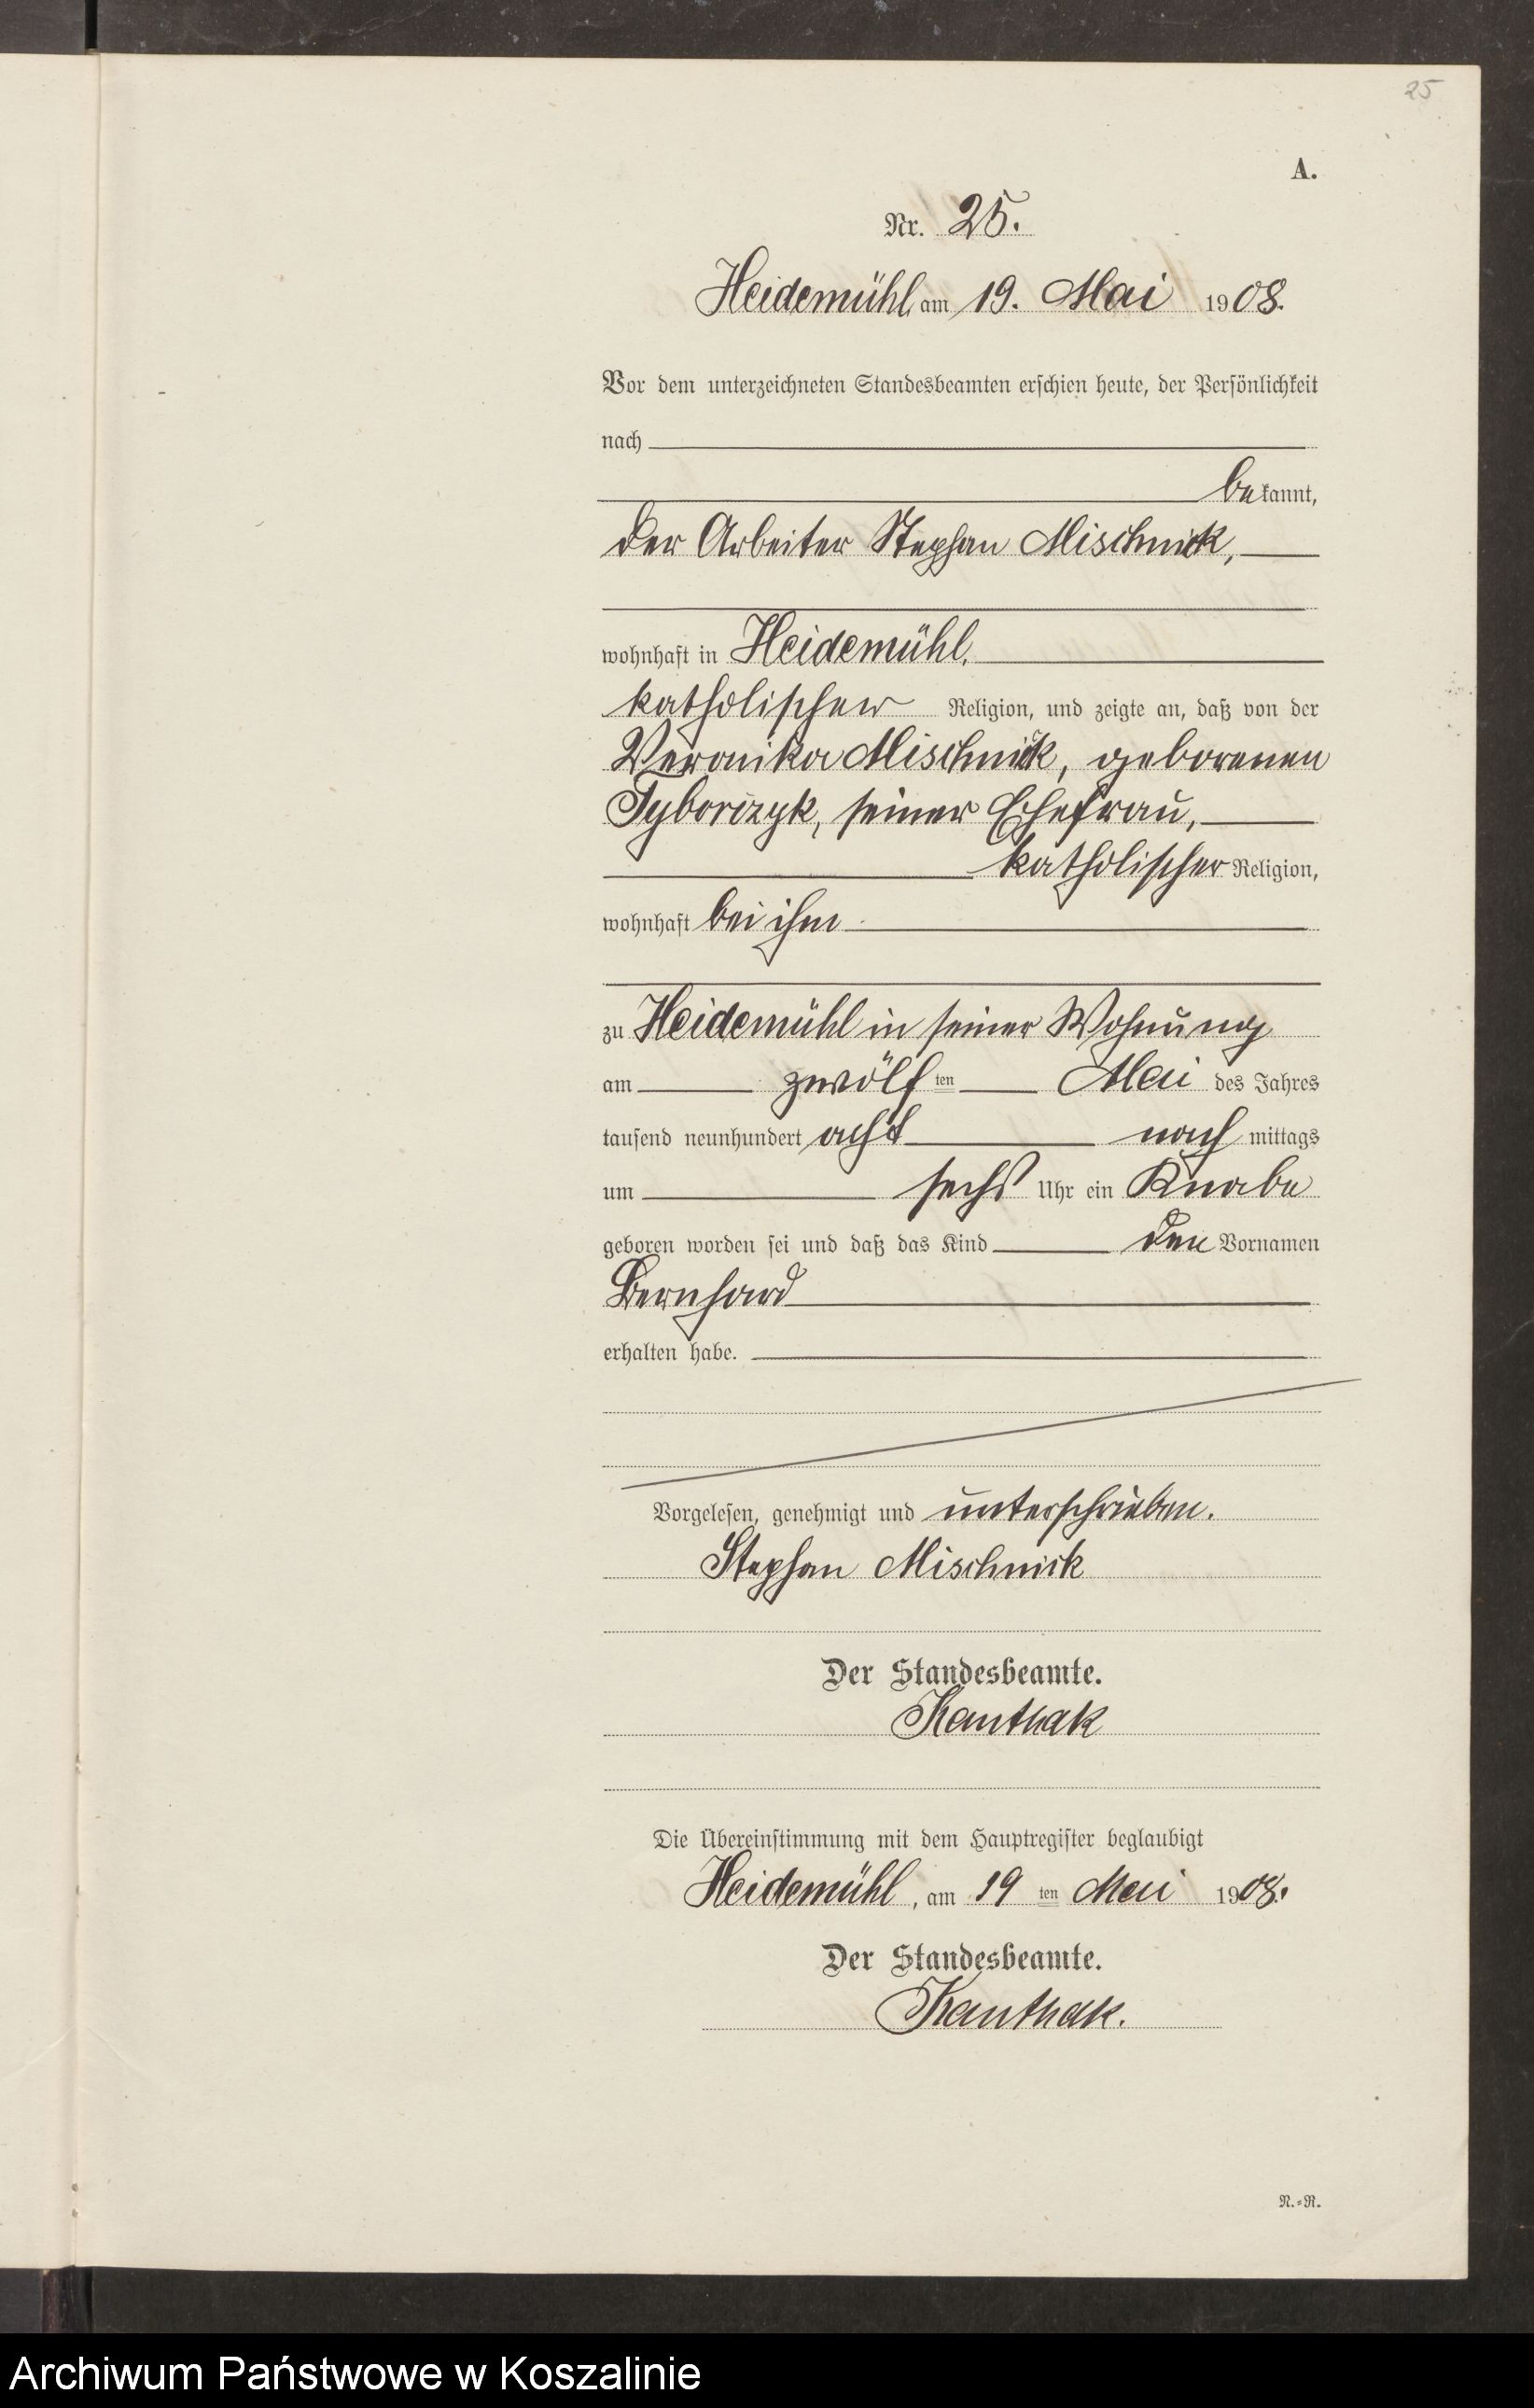 25
A.
Nr. 25.
Heidemühl, am 19. Mai 1908.
Vor dem unterzeichneten Standesbeamten erschien heute, der Persönlichkeit
nach
bekannt,
der Arbeiter Stephan Mischnick,
wohnhaft in Heidemühl,
katholischer Religion, und zeigte an, daß von der
Veronika Mischnick, geborenen
Tyborczyk, seiner Ehefrau,
katholischer Religion,
wohnhaft bei ihm
zu Heidemühl in seiner Wohnung
am zwölf ten Mai des Jahres
tausend neunhundert acht nach mittags
um sechs Uhr ein Knabe
geboren worden sei und daß das Kind den Vornamen
Bernhard
erhalten habe.
Vorgelesen, genehmigt und unterschrieben.
Stephan Mischnick
Der Standesbeamte.
Kanthak
Die Übereinstimmung mit dem Hauptregister beglaubigt
Heidemühl, am 19 ten Mai 1908.
Der Standesbeamte.
Kanthak.
N.=R.
Archiwum Państwowe w Koszalinie